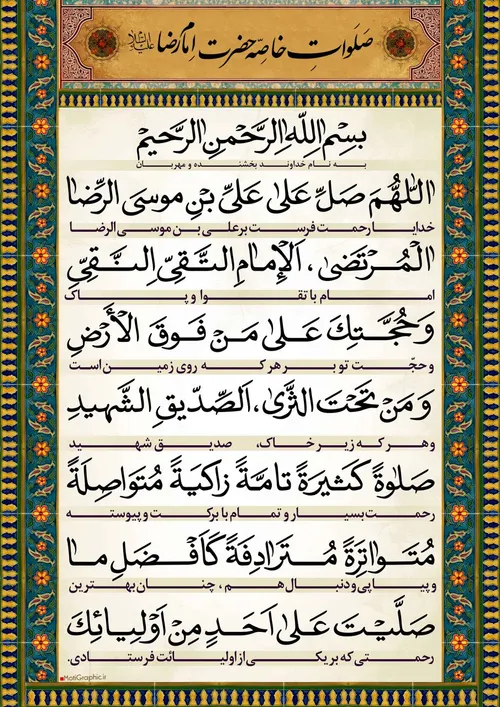 صلوات خاصه حضرت امام رضا علیه‌السلام
بِسْمِ اللهِ الرَّحْمنِ الرَّحیمْ
به نام خداوند بخشنده و مهربان
اَللّهُمَ صَلِّ عَلی عَلیِّ بْنِ موسَی الرِّضا
خدایا رحمت فرست بر علی بن موسی الرضا
الْمُرْتَضی، اَلْإمامِ التَّقِیِّ النَّقِیِّ
امام با تقوا و پاک
وَ حُجَّتِكَ عَلی مَنْ فَوقَ الْأَرْضِ
و حجّت تو بر هر که روی زمین است
وَ مَنْ تَحْتَ الثَّری، اَلصِّدّیقِ الشَّهیدِ
و هر که زیر خاک، صدیق شهید
صَلوةً كَثیرَةً تامَّةً زاكیَةً مُتَواصِلَةً
رحمت بسیار و تمام با برکت و پیوسته
مُتَواتِرَةً مُتَرادِفَةً كَأَفْضَلِ ما
و پیاپی و دنبال هم، چنان بهترین
صَلَّیْتَ عَلی اَحَدٍ مِنْ اَوْلیائِكَ
رحمتی که بر یکی از اولیائت فرستادی.
MotiGraphic.ir